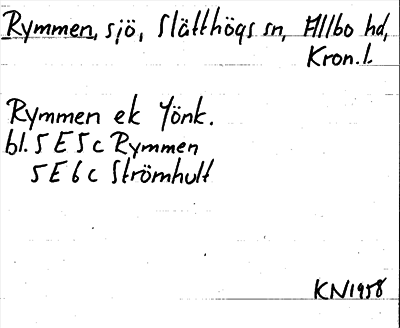 Rymmen, sjö, Slätthögs sn, Allbo hd,
Kron. l.
Rymmen ek Jönk.
bl. 5 E 5 c Rymmen
5 E 6 c Strömhult
KN 1958